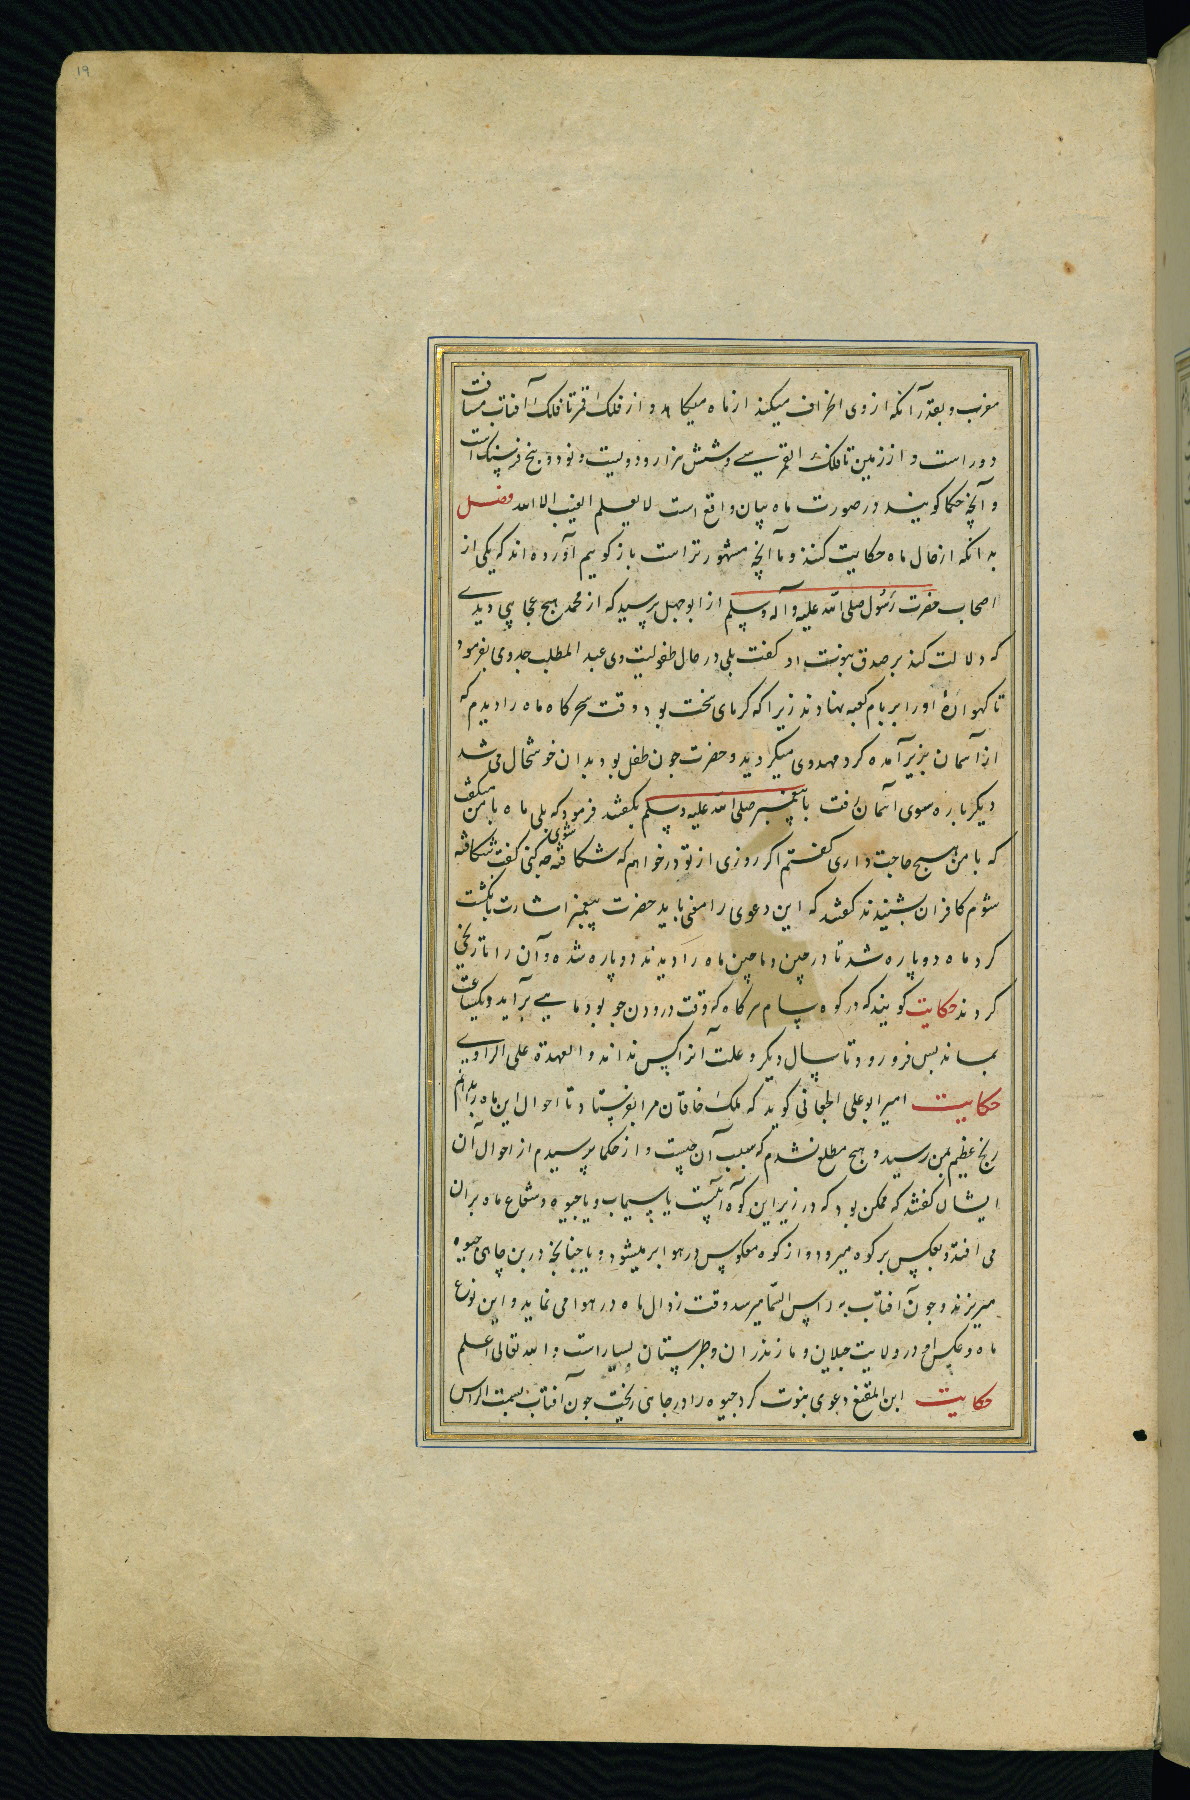 19
مغرب و بقدر آنکه از وی انحراف میکند از ماه میکاهد و از فلک قمر تا فلک آفتاب مسافت
دور است و از زمین تا فلک القمر سی و شش هزار و دویست و نود و پنج فرسنک است
و آنچه حکما کویند در صورت ماه بیان واقع است لا یعلم الغیب الا الله فصل
بدانکه از حال ماه حکایت کنند و ما آنچه مشهورتر است باز کوییم آورده اند که یکی از
اصحاب حضرت رسول صلی الله علیه و آله و سلم از ابوجهل پرسید که از محمد هیچ عجایبی دیدی
که دلالت کند بر صدق نبوت او کفت بلی در حال طفولیت وی عبد المطلب جد وی بفرمود
تا کهواره اورا بر بام کعبه نهادند زیرا که کرمای سخت بود وقت سحرکاه ماه را دیدم که
از آسمان بزیر آمده کرد مهد وی میکردید و حضرت جون طفل بود بدان خوشحال می شد
دیکرباره سوی آسمان رفت با پیغمبر صلی الله علیه و سلم بکفتند فرمود که بلی ماه با من میکفت
که با من هیچ حاجت داری کفتم اکر روزی از تو درخواهم که شکافته شوی چه کنی کفت شکافته
شوم کافران بشنیدند کفتند که این دعوی را معنی باید حضرت پیغمبر اشارت بانکشت
کرد ماه دو پاره شد تا در چین و ماچین ماه را دیدند دو پاره شده و آن را تاریخی
کردند حکایت کویند که در کوه سام هر کاه که وقت درودن جو بود ماهی برآید و یکساعت
بماند بس فرو رود تا سال دیکر و علت آنرا کس نداند و العهدة علی الراوی
حکایت امیر ابو علی کوید که ملک خاقان مرا بفرستاد تا احوال این ماه بدانم
رنج عظیم بمن رسید و هیچ مطلع نشدم که سبب آن چیست و از حکما پرسیدم از احوال آن
ایشان کفتند که ممکن بود که در زیر این کوه آبست یا سیماب و یا جیوه و شعاع ماه بران
می افتد و بعکس بر کوه میرود و از کوه معکوس در هوا بر میشود و یا جنانچه در بن چاهی جیوه
میریزند و جون آفتاب به راس السما میرسد وقت زوال ماه در هوا می نماید و این نوع
ماه و عکس او در ولایت جیلان و مازندران و طبرستان بسیار است و الله تعالی اعلم
حکایت ابن المقنع دعوی نبوت کرد جیوه را در جاهی ریخت جون آفتاب بسمت الراس